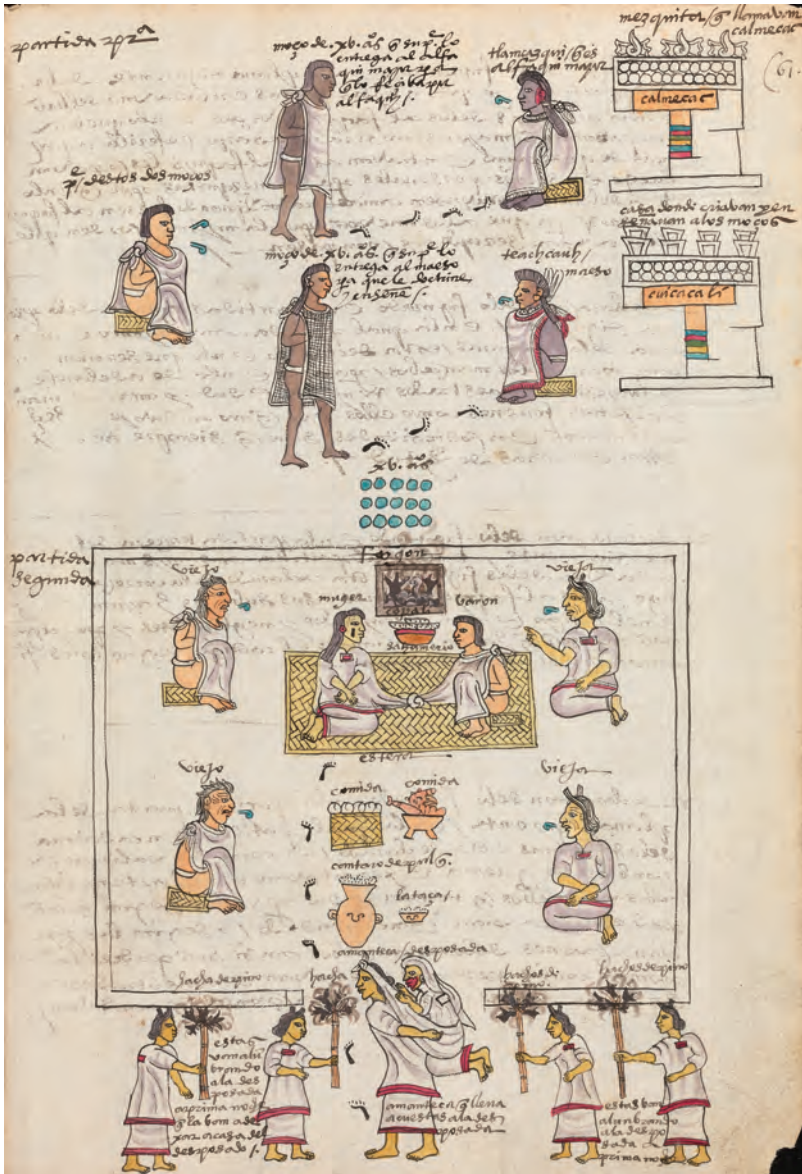 partida prª
moço de .xv. aos. q̃ su pe. lo
entrega al alfa
qui mayor pa
al faqui /.
tlamazqui / q̃ es
alfaqui mayor
mezquita / q̃ llamavan
calmecac
61.
calmecac
pe / destos dos moços
moço de .xv. aos. q̃ su pe. lo
entrega al maeso
pa que le doctrine
y enseñe /.
teachcauh /
maeso
casa donde criavan y en
señavan a los moços
cuicacali
xv. aos
partida
segunda
fogon
viejo
muger
copal
varon
vieja
sahumerio
estera
viejo
comida
comida
vieja
cantaro de pulq̃.
la taça /.
amanteca / desposada
hacha de pino
hacha
hachos de
pino
hachos de pino
estas q̃
van alu
brando
a la des
posada
a prima noche
q̃ la van a de
xar a casa del
desposado /.
amanteca / q̃ lleva
a cuestas a la des
posada
estas van
alunbrando
a la despo
sada a
prima noche